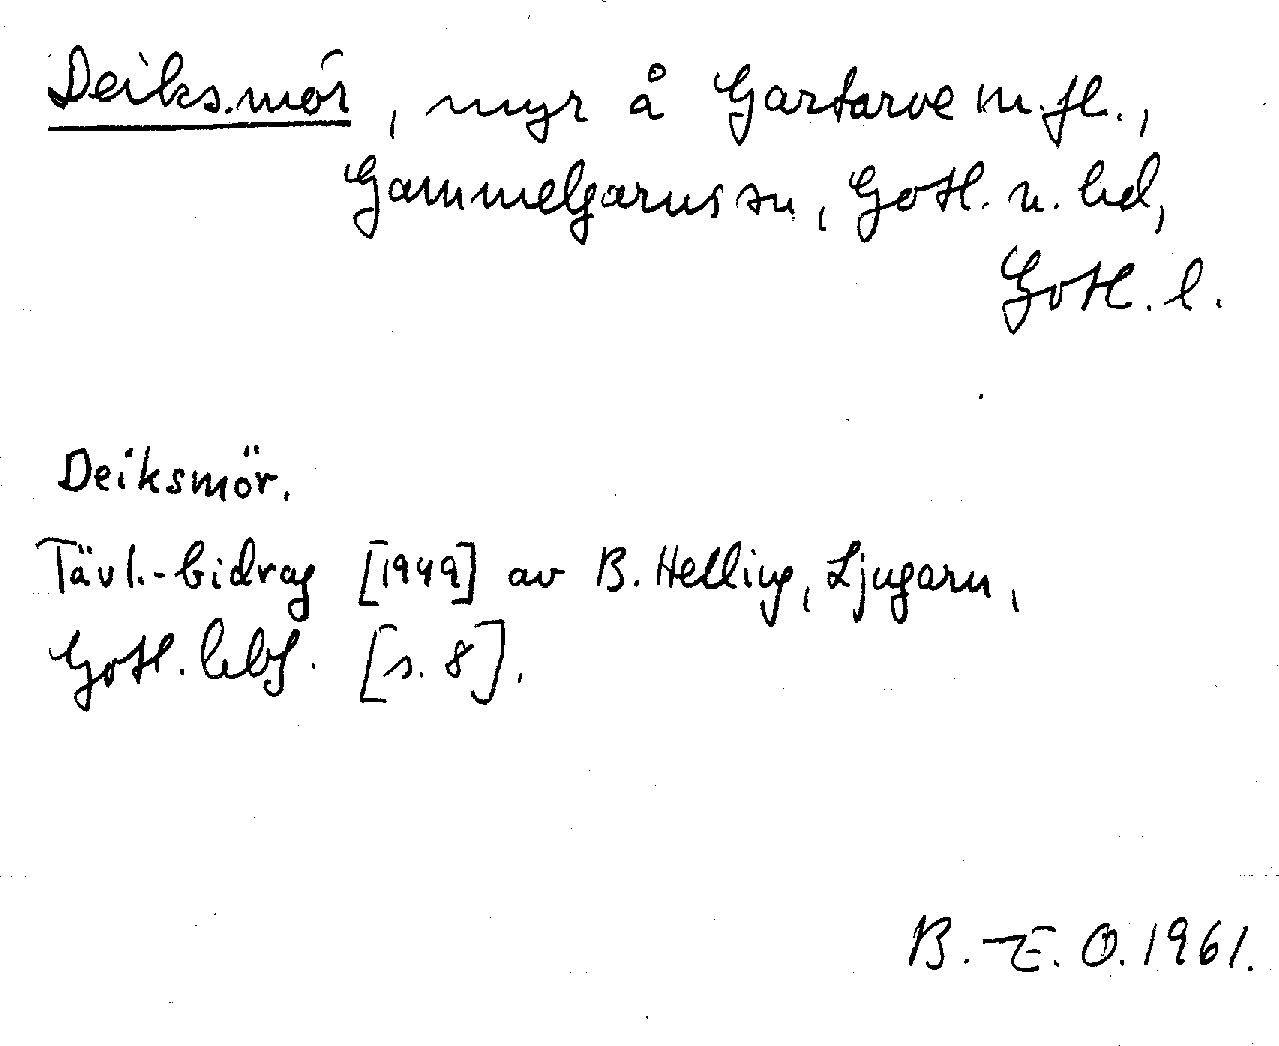 Deiksmör, myr å Gartarve m.fl.,
Gammelgarns sn, Gotl. n. hd,
Gotl. l.
Deiksmör.
Tävl.-bidrag [1949] av B. Helling, Ljugarn,
Gotl. [s. 8].
B.-E. O. 1961.